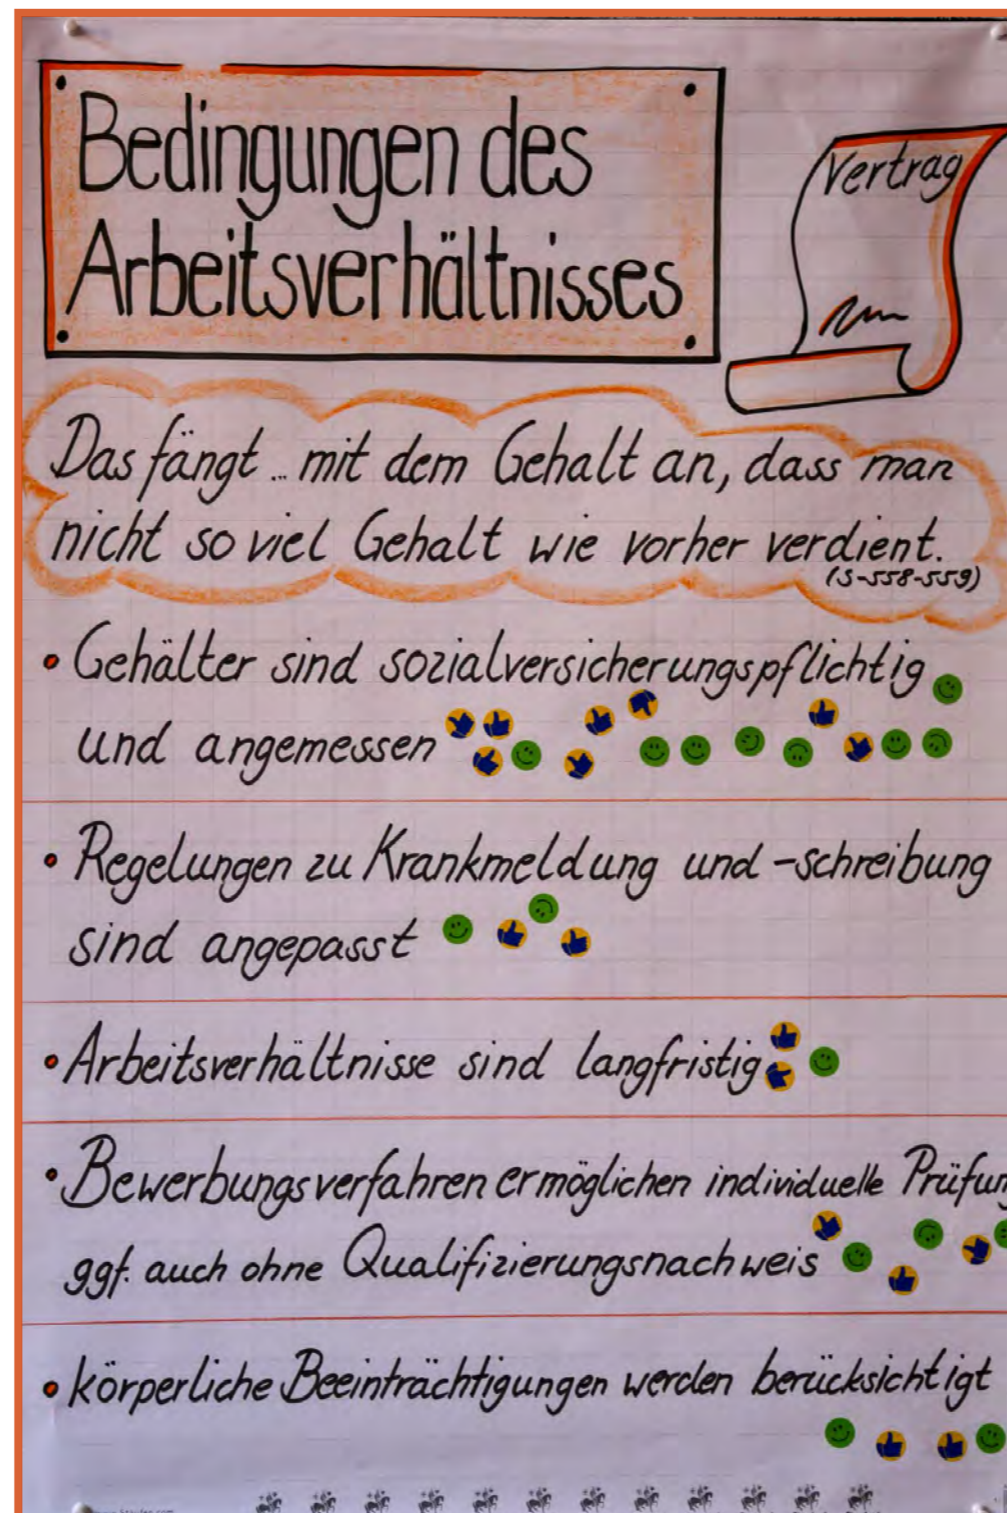 Bedingungen des
Arbeitsverhältnisses
Vertrag
Das fängt ... mit dem Gehalt an, dass man
nicht so viel Gehalt wie vorher verdient.
(S-558-559)
• Gehälter sind sozialversicherungspflichtig
und angemessen
• Regelungen zu Krankmeldung und -schreibung
sind angepasst
• Arbeitsverhältnisse sind langfristig
• Bewerbungsverfahren ermöglichen individuelle Prüfun
ggf. auch ohne Qualifizierungsnachweis
• körperliche Beeinträchtigungen werden berücksichtigt